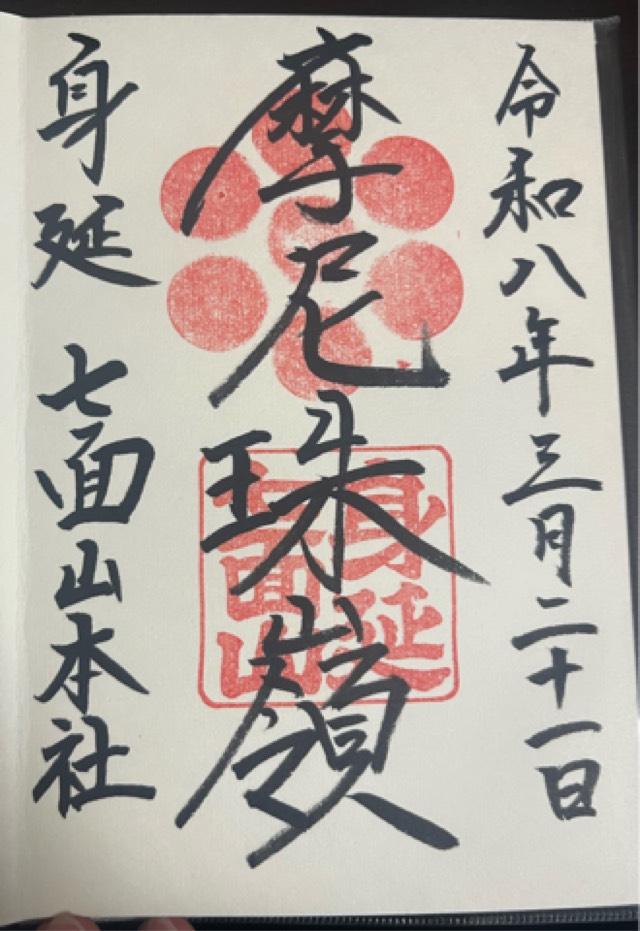 令和八年三月二十一日
摩尼珠嶺
身延
七面山
身延 七面山本社